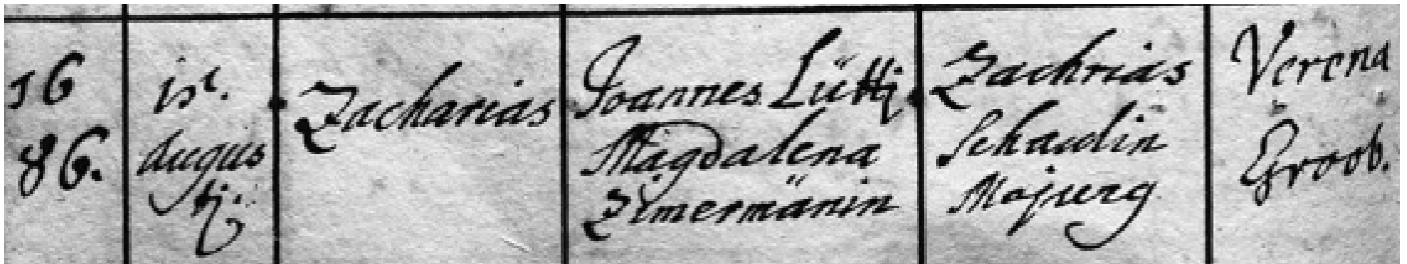 16
86.
ist.
augus
tj.
Zacharias
Joannes Lütti
Magdalena
Zimermänin
Zachrias
Schaulin
Verena
Groob.